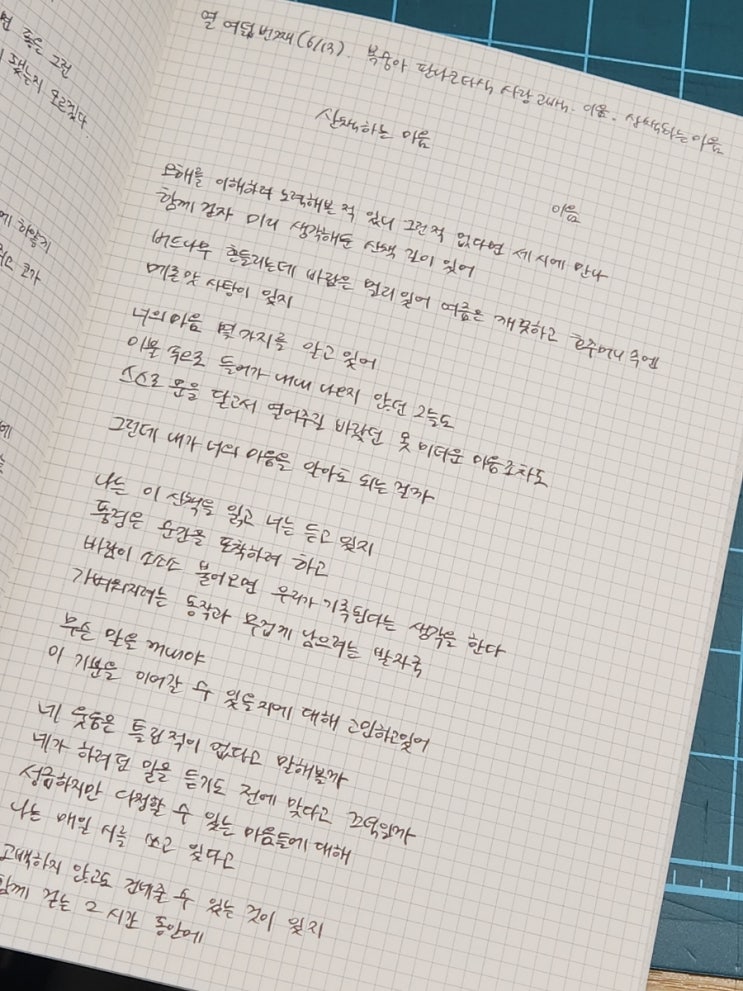 번 좋은 그런
됐는지 모르겠다
에 하얗게
코가
에
는
열 여덟 번째 (6/13). 복숭아 판나코타색 사랑 고백. 이음. 산책하는 마음
산책하는 마음
이음
오해를 이해하려 노력해본 적 있니 그런적 없다면 세시에 만나
함께 걷자 미리 생각해둔 산책 길이 있어
버드나무 흔들리는데 바람은 멀리 있어 여름은 깨끗하고 호주머니 속엔
메론맛 사탕이 있지
너의 마음 몇 가지를 알고 있어
이불 속으로 들어가 내내 나오지 않던 그늘도
스스로 문을 닫고서 열어주길 바랐던 못 미더운 마음조차도
그런데 내가 너의 마음을 알아도 되는 걸까
나는 이 산책을 읽고 너는 듣고 있지
풍경은 순간을 포착하려 하고
바람이 소소소 불어오면 우리가 기록된다는 생각을 한다
가벼워지려는 동작과 무겁게 남으려는 발자국
무슨 말을 꺼내야
이 기분을 이어갈 수 있을지에 대해 고민하고있어
네 웃음은 틀린적이 없다고 말해볼까
네가 하려던 말을 듣기도 전에 맞다고 끄덕일까
성급하지만 다정할 수 있는 마음들에 대해
나는 매일 시를 쓰고 있다고
고백하지 않고도 건네줄 수 있는 것이 있지
함께 걷는 그 시간 동안에